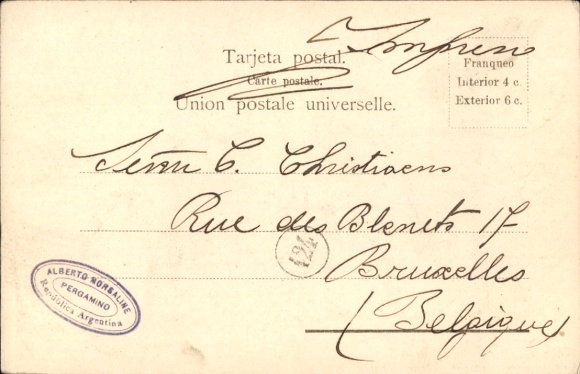 Impreso
Tarjeta postal.
Carte postale.
Union postale universelle.
Franqueo
Interior 4 c.
Exterior 6 c.
C. Christiaens
Rue des Bleuets 17
124
Bruxelles
(Belgique)
ALBERTO NORSALINE
PERGAMINO
República Argentina